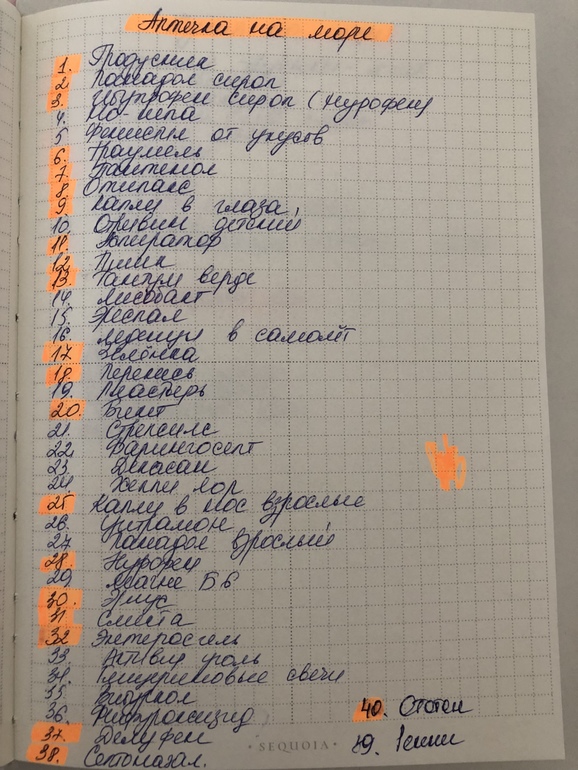 Аптечка на море
1. Градусник
2. Панадол сироп
3. Ибупрофен сироп (нурофен)
4. Но-шпа
5 Фенистил от укусов
6. Траумель
7. Пантенол
8 Отипакс
9 капли в глаза
10. Отривин детский
11. Аспиратор
12. Пшик
13. Тантум верде
14. Лисобакт
15. Эреспал
16. леденцы в самолёт
17 Зелёнка
18. Перекись
19. Пластырь
20. Бинт
21. Стрепсилс
22. Фарингосепт
23. Декасан
24 Хеппи лор
25 капли в нос взрослые
26. Цитрамон
27. Панадол взрослый
28. Нурофен
29. Магне Б6
30. Эмус
31 Смекта
32 Энтеросгель
33. Актівит уголь
34. Глицериновые свечи
35.
36. Нифроксизид
37. Делуфен
38. Септоназал.
40. Стоп
39. Ренни
SEQUOIA